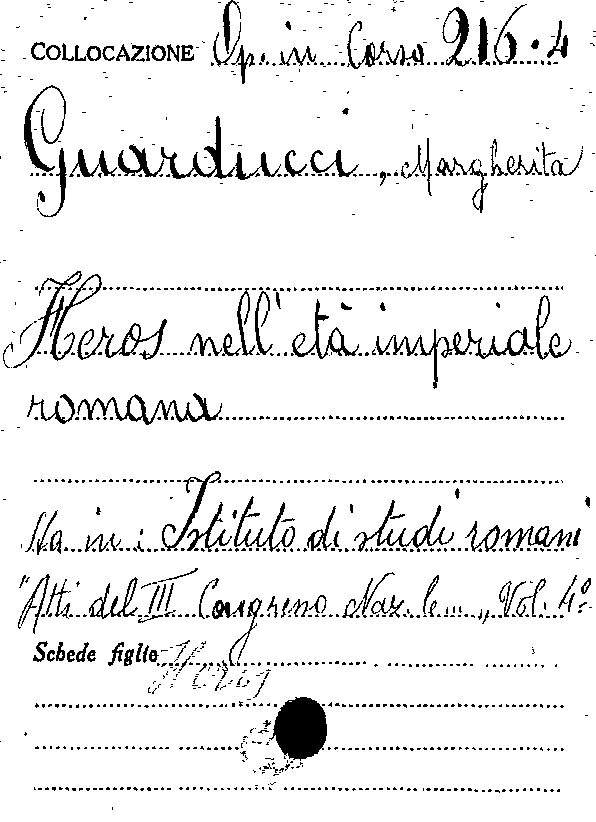 COLLOCAZIONE Op. in Corso 216.4
Guarducci, Margherita
Heros nell'età imperiale
romana
Sta in: Istituto di studi romani
"Atti del III Congresso Naz.le... „ Vol. 4º
Schede figlie
Heros